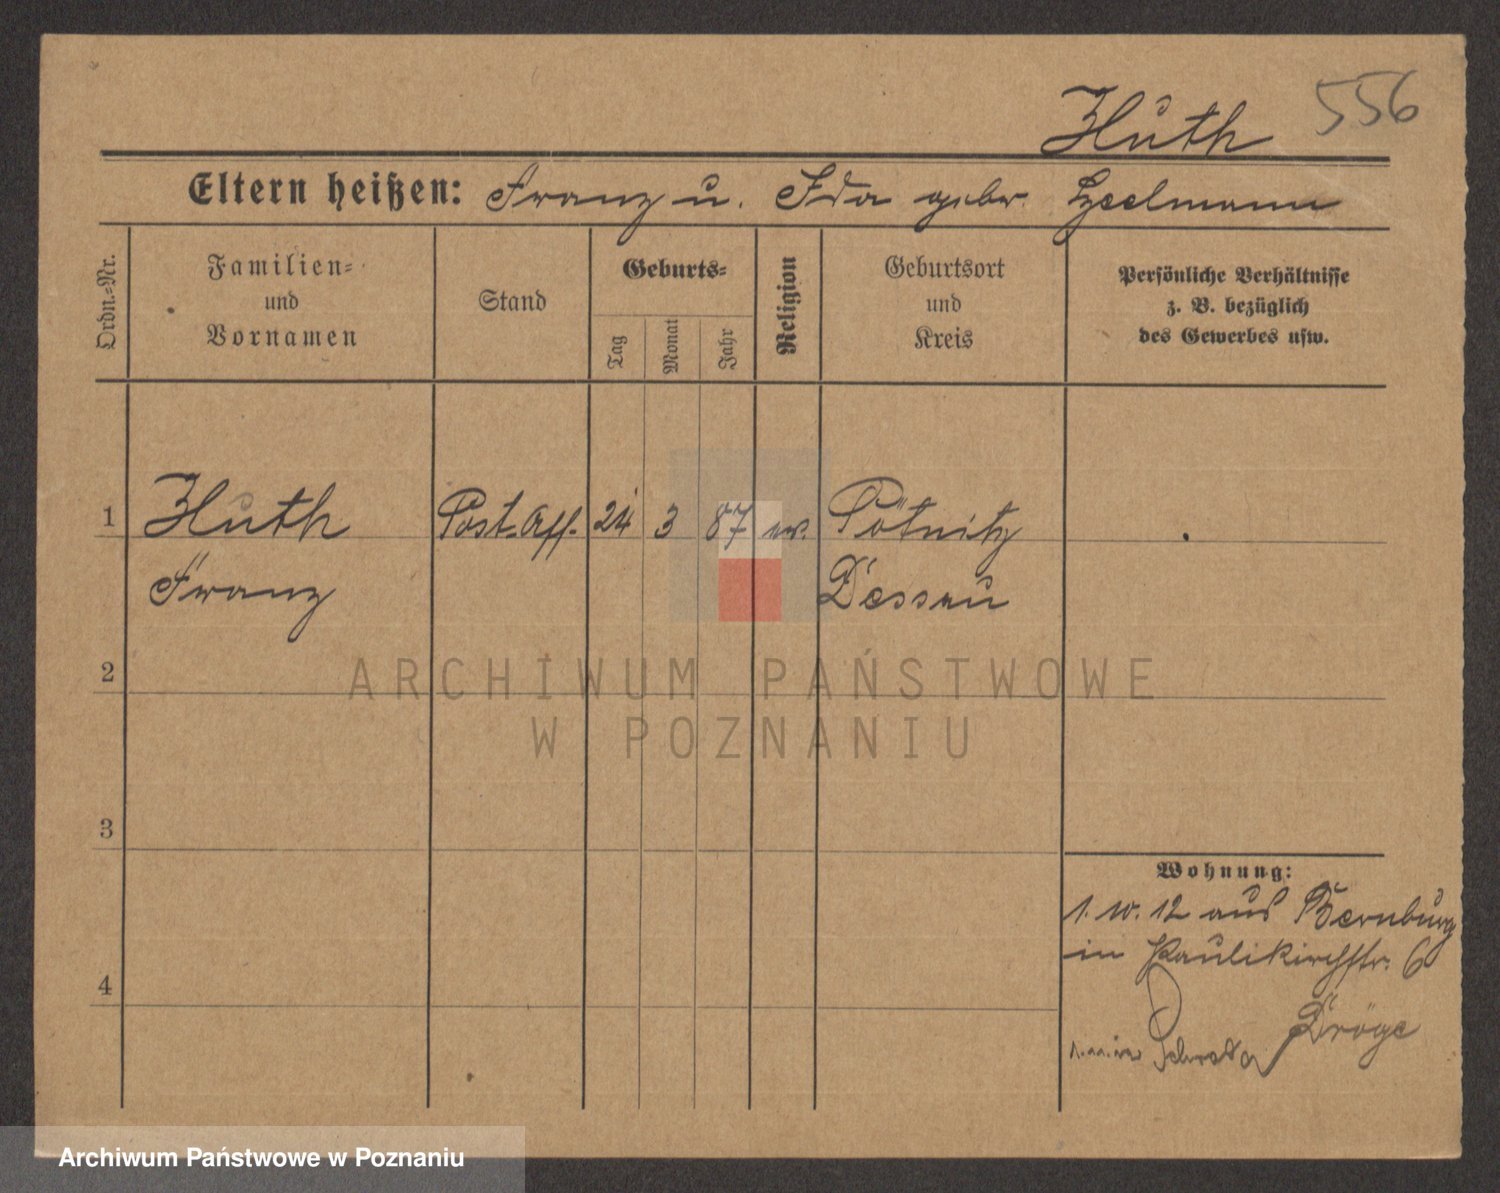 556
Huth
Eltern heißen: Franz u. Ida gebr.
Ordn.-Nr.
Familien-
und
Vornamen
Stand
Geburts-
Tag
Monat
Jahr
Religion
Geburtsort
und
Kreis
Persönliche Verhältnisse
z. B. bezüglich
des Gewerbes usw.
1
Huth
Franz
Post-Ass.
24
3
87
ev.
Pötnitz
Dessau
2
3
4
Wohnung:
1.10.12 aus Bernburg
in Paulikirchstr. 6
Dröge
ARCHIWUM PAŃSTWOWE
W POZNANIU
Archiwum Państwowe w Poznaniu